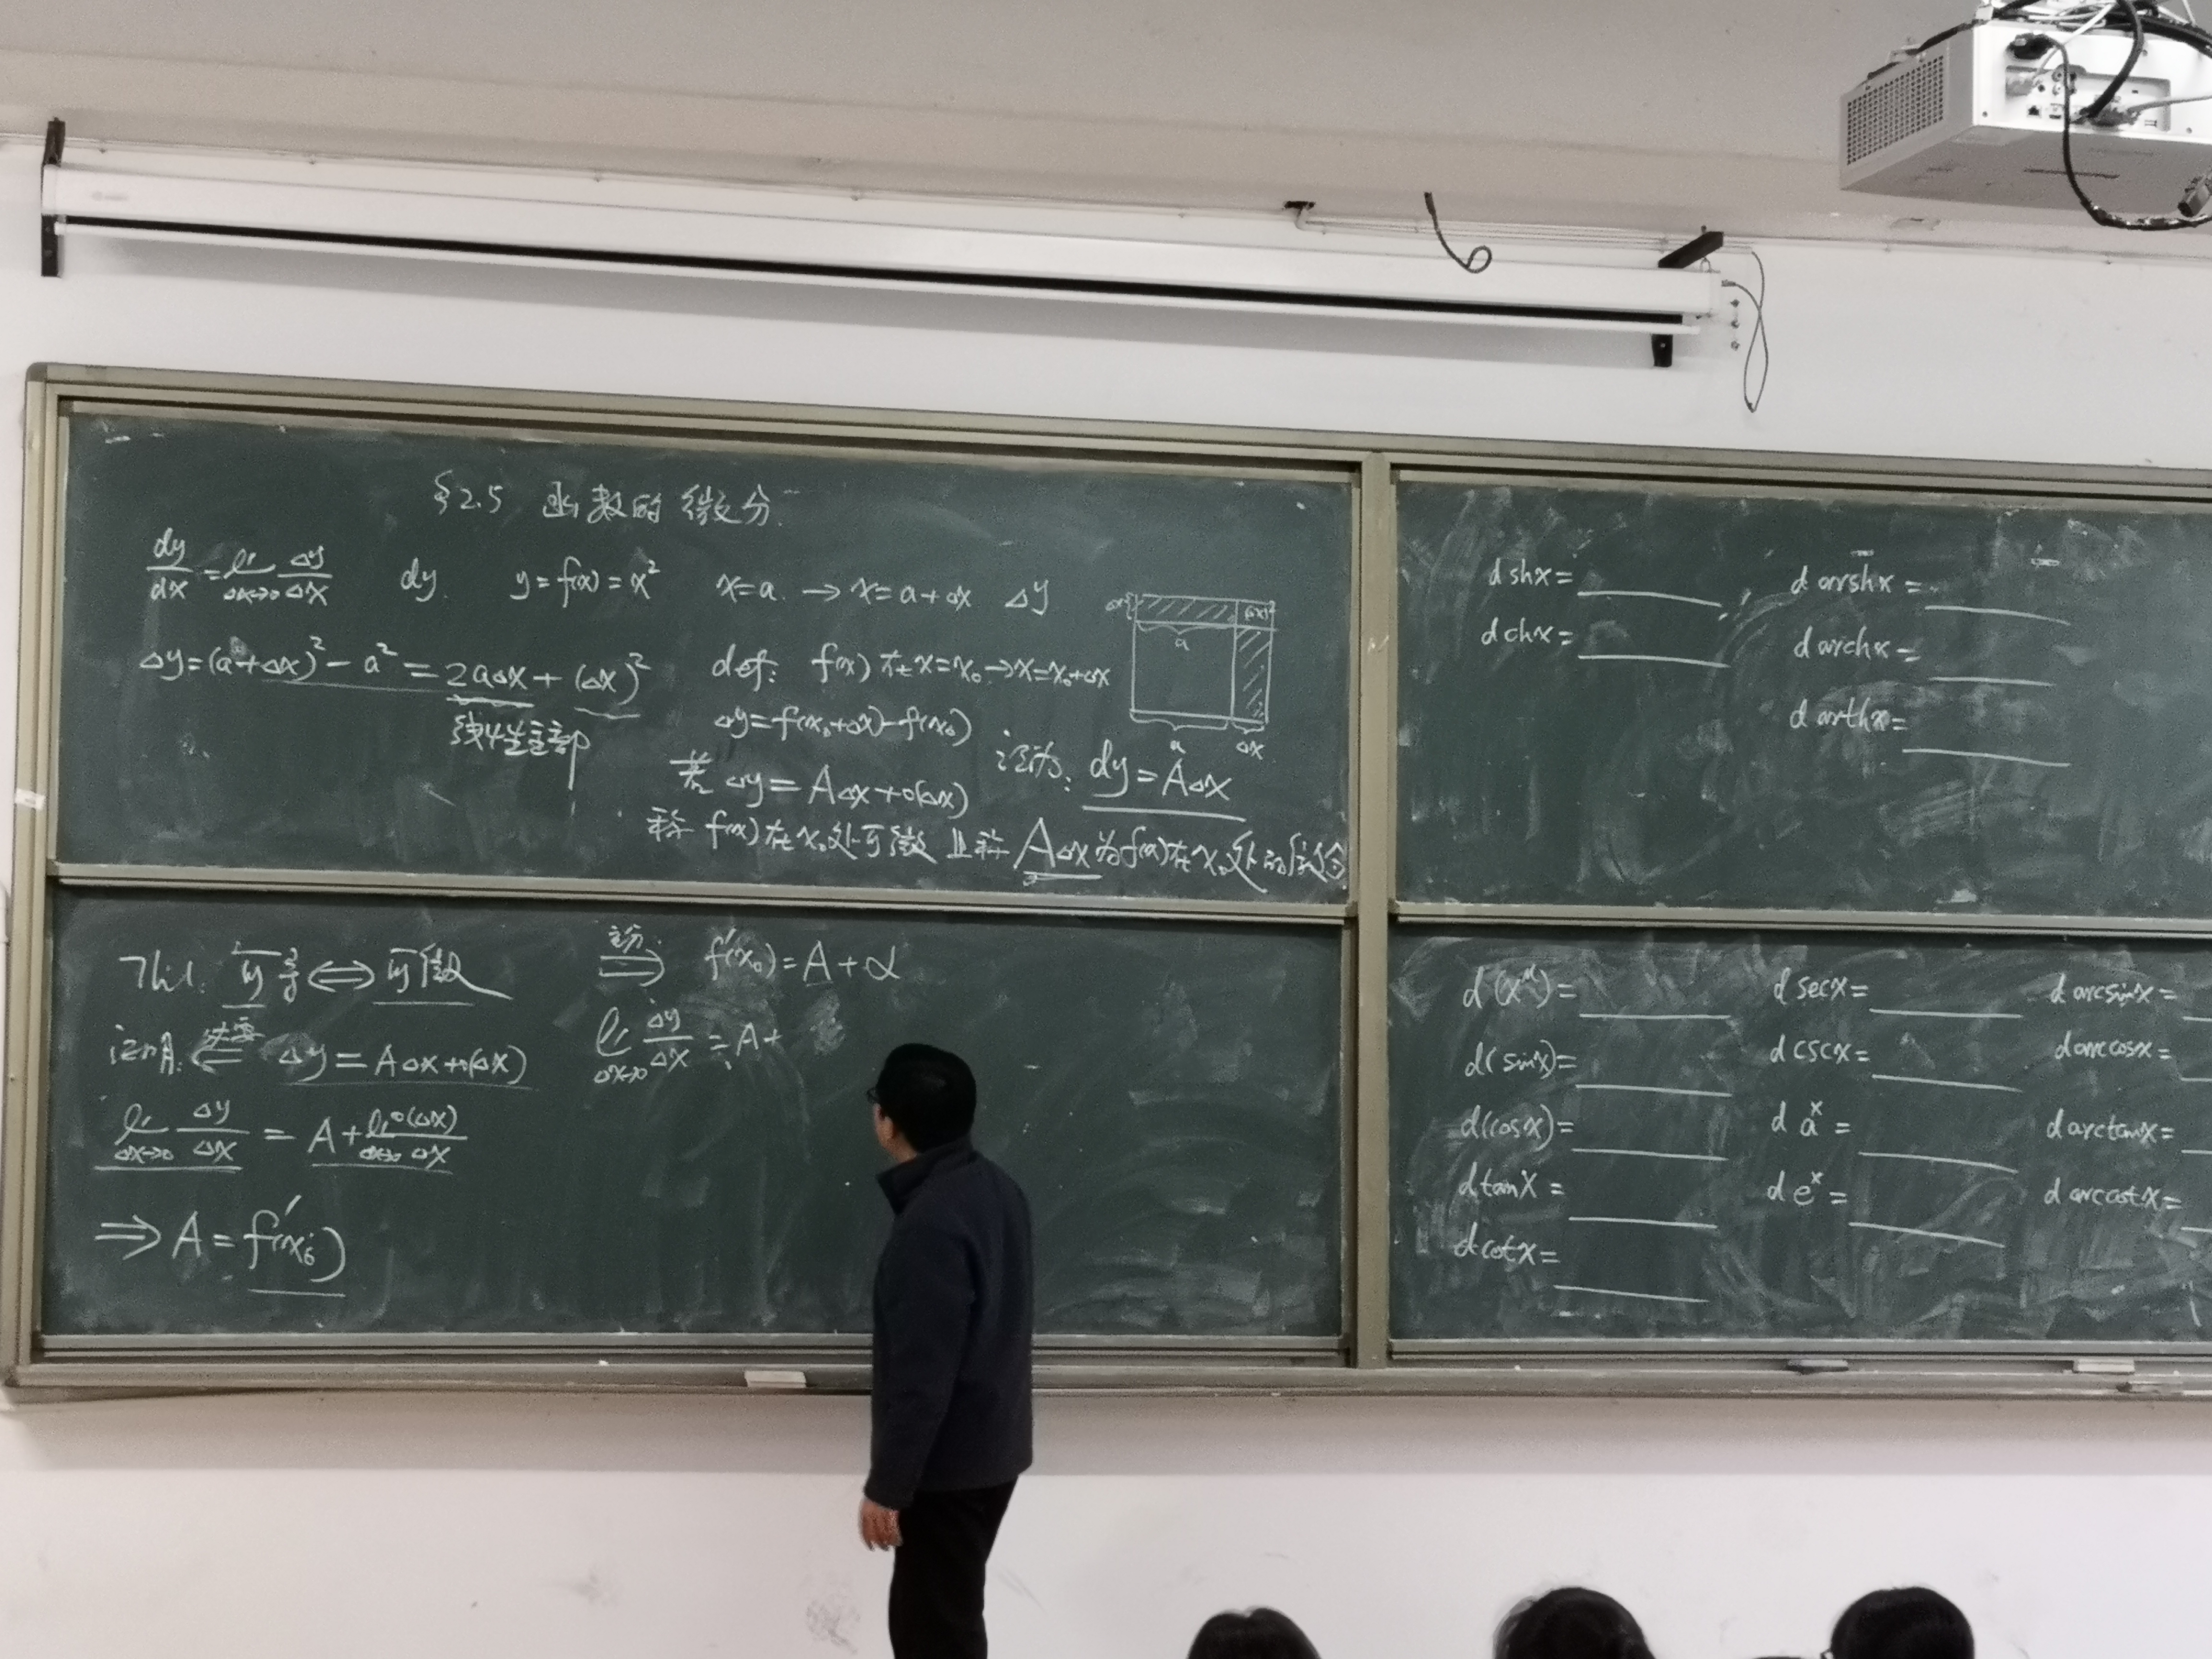 §2.5 函数的微分
dy/dx = lim_{Δx→0} Δy/Δx   dy.   y=f(x)=x²   x=a → x=a+Δx   Δy
Δy=(a+Δx)²-a²=2aΔx+(Δx)²
线性主部
def: f(x)在x=x₀→x=x₀+Δx
Δy=f(x₀+Δx)-f(x₀)
若 Δy=AΔx+o(Δx)   记为: dy=AΔx
称 f(x)在x₀处可微 且称 AΔx为f(x)在x₀处的微分
Δx
(Δx)²
a
a   Δx
Th1. 可导⇔可微
证明: ⇐ 必要 Δy=AΔx+o(Δx)
lim_{Δx→0} Δy/Δx = A+lim_{Δx→0} o(Δx)/Δx
⇒ A=f'(x₀)
⇒ f'(x₀)=A+α
lim_{Δx→0} Δy/Δx = A+
d shx=
d chx=
d arshx=
d archx=
d arthx=
d(x^μ)=
d(sinx)=
d(cosx)=
d tanx=
d cotx=
d secx=
d cscx=
d a^x=
d e^x=
d arcsinx=
d arccosx=
d arctanx=
d arccotx=